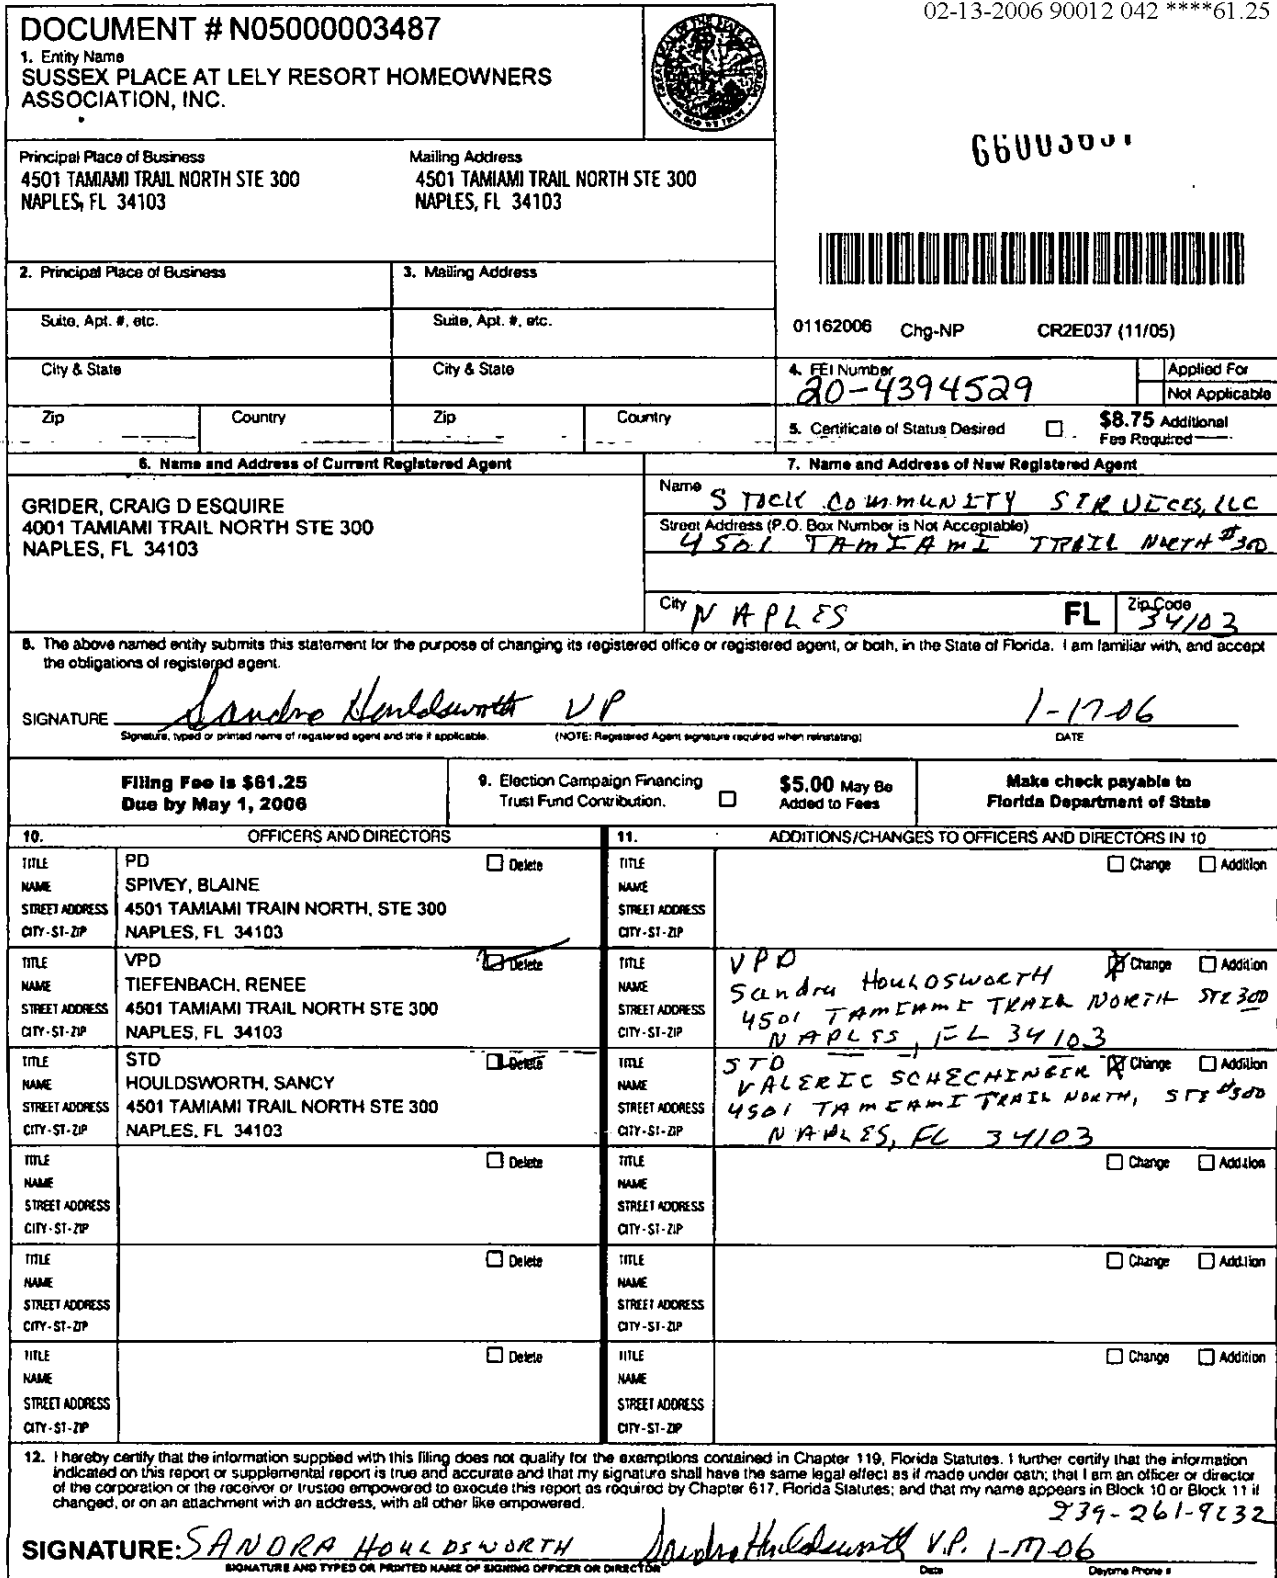 02-13-2006 90012 042 ****61.25
DOCUMENT # N05000003487
1. Entity Name
SUSSEX PLACE AT LELY RESORT HOMEOWNERS
ASSOCIATION, INC.
Principal Place of Business
4501 TAMIAMI TRAIL NORTH STE 300
NAPLES, FL 34103
Mailing Address
4501 TAMIAMI TRAIL NORTH STE 300
NAPLES, FL 34103
2. Principal Place of Business
3. Mailing Address
Suite, Apt. #, etc.
Suite, Apt. #, etc.
01162006 Chg-NP CR2E037 (11/05)
City & State
City & State
4. FEI Number
20-4394529
Applied For
Not Applicable
Zip
Country
Zip
Country
5. Certificate of Status Desired
$8.75 Additional
Fee Required
6. Name and Address of Current Registered Agent
GRIDER, CRAIG D ESQUIRE
4001 TAMIAMI TRAIL NORTH STE 300
NAPLES, FL 34103
7. Name and Address of New Registered Agent
Name STOCK COMMUNITY SERVICES, LLC
Street Address (P.O. Box Number is Not Acceptable)
4501 TAMIAMI TRAIL NORTH #300
City NAPLES FL Zip Code 34103
8. The above named entity submits this statement for the purpose of changing its registered office or registered agent, or both, in the State of Florida. I am familiar with, and accept
the obligations of registered agent.
SIGNATURE Sandra Houldsworth VP 1-17-06
Signature, typed or printed name of registered agent and title if applicable. (NOTE: Registered Agent signature required when reinstating) DATE
Filing Fee is $61.25
Due by May 1, 2006
9. Election Campaign Financing
Trust Fund Contribution.
$5.00 May Be
Added to Fees
Make check payable to
Florida Department of State
10. OFFICERS AND DIRECTORS
11. ADDITIONS/CHANGES TO OFFICERS AND DIRECTORS IN 10
TITLE PD Delete
NAME SPIVEY, BLAINE
STREET ADDRESS 4501 TAMIAMI TRAIN NORTH, STE 300
CITY-ST-ZIP NAPLES, FL 34103
TITLE Change Addition
NAME
STREET ADDRESS
CITY-ST-ZIP
TITLE VPD Delete
NAME TIEFENBACH, RENEE
STREET ADDRESS 4501 TAMIAMI TRAIL NORTH STE 300
CITY-ST-ZIP NAPLES, FL 34103
TITLE VPD Change Addition
NAME Sandra HOULDSWORTH
STREET ADDRESS 4501 TAMIAMI TRAIL NORTH STE 300
CITY-ST-ZIP NAPLES, FL 34103
TITLE STD Delete
NAME HOULDSWORTH, SANCY
STREET ADDRESS 4501 TAMIAMI TRAIL NORTH STE 300
CITY-ST-ZIP NAPLES, FL 34103
TITLE STD Change Addition
NAME VALERIE SCHECHINGER
STREET ADDRESS 4501 TAMIAMI TRAIL NORTH, STE #300
CITY-ST-ZIP NAPLES, FL 34103
TITLE Delete
NAME
STREET ADDRESS
CITY-ST-ZIP
TITLE Change Addition
NAME
STREET ADDRESS
CITY-ST-ZIP
TITLE Delete
NAME
STREET ADDRESS
CITY-ST-ZIP
TITLE Change Addition
NAME
STREET ADDRESS
CITY-ST-ZIP
TITLE Delete
NAME
STREET ADDRESS
CITY-ST-ZIP
TITLE Change Addition
NAME
STREET ADDRESS
CITY-ST-ZIP
12. I hereby certify that the information supplied with this filing does not qualify for the exemptions contained in Chapter 119, Florida Statutes. I further certify that the information
indicated on this report or supplemental report is true and accurate and that my signature shall have the same legal effect as if made under oath; that I am an officer or director
of the corporation or the receiver or trustee empowered to execute this report as required by Chapter 617, Florida Statutes; and that my name appears in Block 10 or Block 11 if
changed, or on an attachment with an address, with all other like empowered.
SIGNATURE: SANDRA HOULDSWORTH Sandra Houldsworth V.P. 1-17-06
SIGNATURE AND TYPED OR PRINTED NAME OF SIGNING OFFICER OR DIRECTOR Date Daytime Phone #